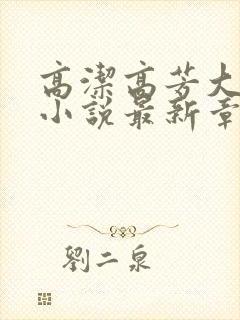 高潔高芳大
小說最新章
劉二泉